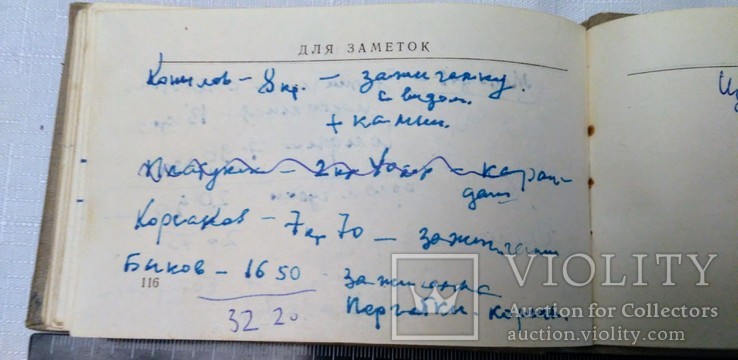 ДЛЯ ЗАМЕТОК
Копылов - 8 кр. - зажигалку
с видом.
+ камни.
2 кр 40 - каран-
даш
Корсаков - 7 кр 70 - зажигалки
Быков - 16 50 зажигалка
Перчатки
116
32 20
VIOLITY
Auction for Collectors
auction.violity.com